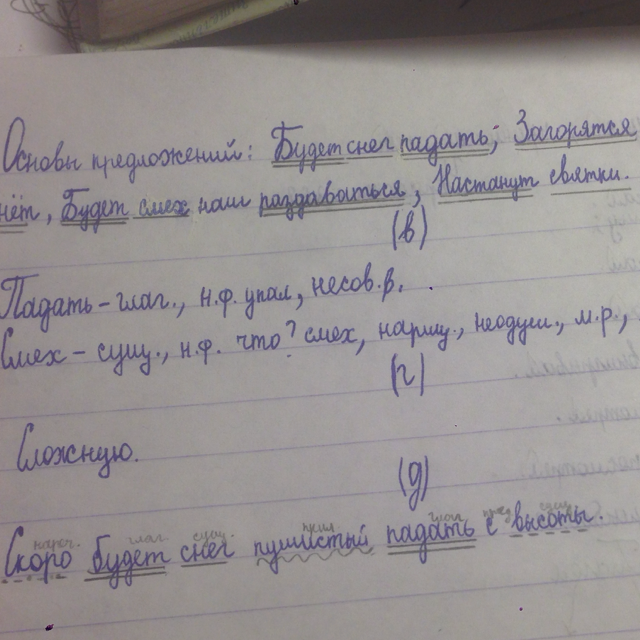 Основы предложений: Будет снег падать; Загорятся
нёт, Будет смех наш раздаваться; Настанут святки.
(в)
Падать – глаг., н.ф. упал, несов.в.
Смех – сущ., н.ф. что? смех, нариц., неодуш., м.р.,
(г)
Сложную.
(д)
нареч. глаг. сущ. прил. глаг. пред. сущ.
Скоро будет снег пушистый падать с высоты.